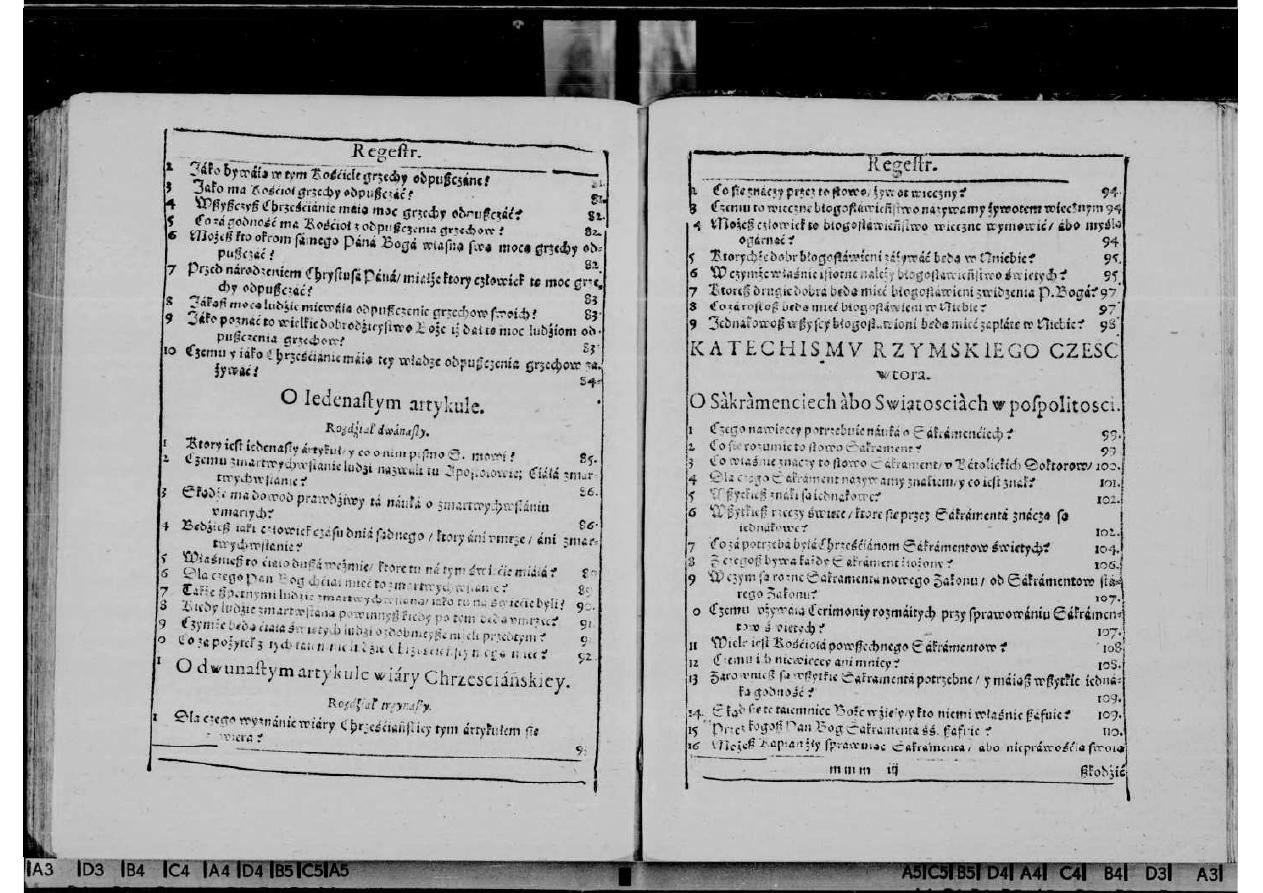 Regestr.
2 Jáko bywáią w tym Kośćiele grzechy odpußczáne? 81.
3 Jáko ma Kośćioł grzechy odpußczáć? 82.
4 Wßyßczyß Chrześćiánie máią moc grzechy odpußczáć? 82.
5 Co zá godność ma Kośćioł z odpußczenia grzechow? 82.
6 Możeß kto okrom sámego Páná Bogá własną swą mocą grzechy od-
pußczáć? 82
7 Przed národzeniem Chrystusá Páná/ miałże ktory człowiek tę moc grze-
chy odpußczáć? 83
8 Jákąß mocą ludźie miewáią odpußczenie grzechow swoich? 83.
9 Jáko poznáć to wielkie dobrodźieystwo Boże iż dał tę moc ludźiom od-
pußczenia grzechow? 83.
10 Czemu y iáko Chrześćiánie máią tey władze odpußczenia grzechow za-
żywáć? 84.
O Iedenastym artykule.
Rozdźiał dwánasty.
1 Ktory iest iedenasty ártykuł/ y co o nim pismo S. mowi? 85.
2 Czemu zmartwychwstánie ludźi nazwáli tu Apostołowie; Ciáłá zmar-
twychwstánie? 86.
3 Skądże ma dowod prawdźiwy tá náuká o zmartwychwstániu
vmárłych? 86.
4 Będźieß iáki człowiek czásu dniá sądnego / ktory áni vmrze/ áni zmar-
twychwstánie?
5 Właśnieß to ciáło dußá weźmie/ ktore tu ná tym świećie miáłá?
6 Dla czego Pan Bog chćiał mieć to zmartwychwstánie?
7 Tákże ßpetnymi ludźie zmartwychwstáną/ iáko tu ná świećie byli? 90.
8 Kiedy ludźie zmartwstáną powinnyß kiedy po tym będą vmrzeć? 91.
9 Czymże będą ciáłá świętych ludźi ozdobnieyße niźli przedtym?
0 Co zá pożytek z tych táiemnic ludźie Chrześćiáńscy mogą mieć? 92.
O dwunastym artykule wiáry Chrzesciáńskiey.
Rozdźiał trzynasty.
1 Dla czego wyznánie wiáry Chrześćiáńskiey tym ártykułem się
zawiera?
Regestr.
2 Co się znáczy przez to słowo/ żywot wieczny? 94.
3 Czemu to wieczne błogosłáwieństwo nazywamy żywotem wiecznym 94
4 Możeß człowiek to błogosłáwieństwo wieczne wymowić/ ábo myślą
ogárnąć? 94
5 Ktorychże dobr błogosłáwieni záżywáć będą w Niebie? 95.
6 W czymże właśnie istotne należy błogosłáwieństwo świętych? 95.
7 Ktoreß drugie dobrá będą mieć błogosłáwieni z widzenia P. Bogá? 97
8 Co zá roskoß będą mieć błogosłáwieni w Niebie? 97
9 Jednákowoß wßyscy błogosłáwieni będą mieć zapłátę w Niebie? 98
KATECHISMV RZYMSKIEGO CZESC
wtora.
O Sàkràmenciech àbo Swiątosciàch w pospolitosci.
1 Czego nawięcey potrzebuie náuká o Sákrámenćiech? 99.
2 Co się rozumie to słowo Sákrament? 99
3 Co właśnie znáczy to słowo Sákráment/ v Kátolickich Doktorow/ 100.
4 Dla czego Sákráment nazywamy znákiem/ y co iest znák? 101.
5 Wßytkieß znáki są iednákowe? 102.
6 Wßytkieß rzeczy święte/ ktore się przez Sákrámentá znáczą są
iednákowe? 102.
7 Co zá potrzebá byłá Chrześćiánom Sákrámentow świętych? 104.
8 Z czegoß bywa káżdy Sákráment złożony? 106.
9 W czym są rozne Sákrámentá nowego Zakonu/ od Sákrámentow sta-
rego Zakonu? 107.
0 Czemu vżywáią Cerimoniy rozmáitych przy spráwowániu Sákrámen-
tow świętych? 107.
11 Wiele iest Kośćiołá powßechnego Sákrámentow? 108
12 Czemu ich niewięcey áni mniey? 108.
13 Zárownieß są wßytkie Sákrámentá potrzebne/ y máiąß wßytkie iedná-
ką godność? 109.
14. Skąd się te táiemnice Boże wźięły/ y kto niemi właśnie ßáfuie? 109.
15 Przez kogoß Pan Bog Sákrámentá śś. ßáfuie? 110.
16 Możeß Kápłan zły spráwowáć Sákrámentá/ ábo niepráwośćią swoią
mmm iij ßkodźić
A3 D3 B4 C4 A4 D4 B5 C5 A5
A5 C5 B5 D4 A4 C4 B4 D3 A3